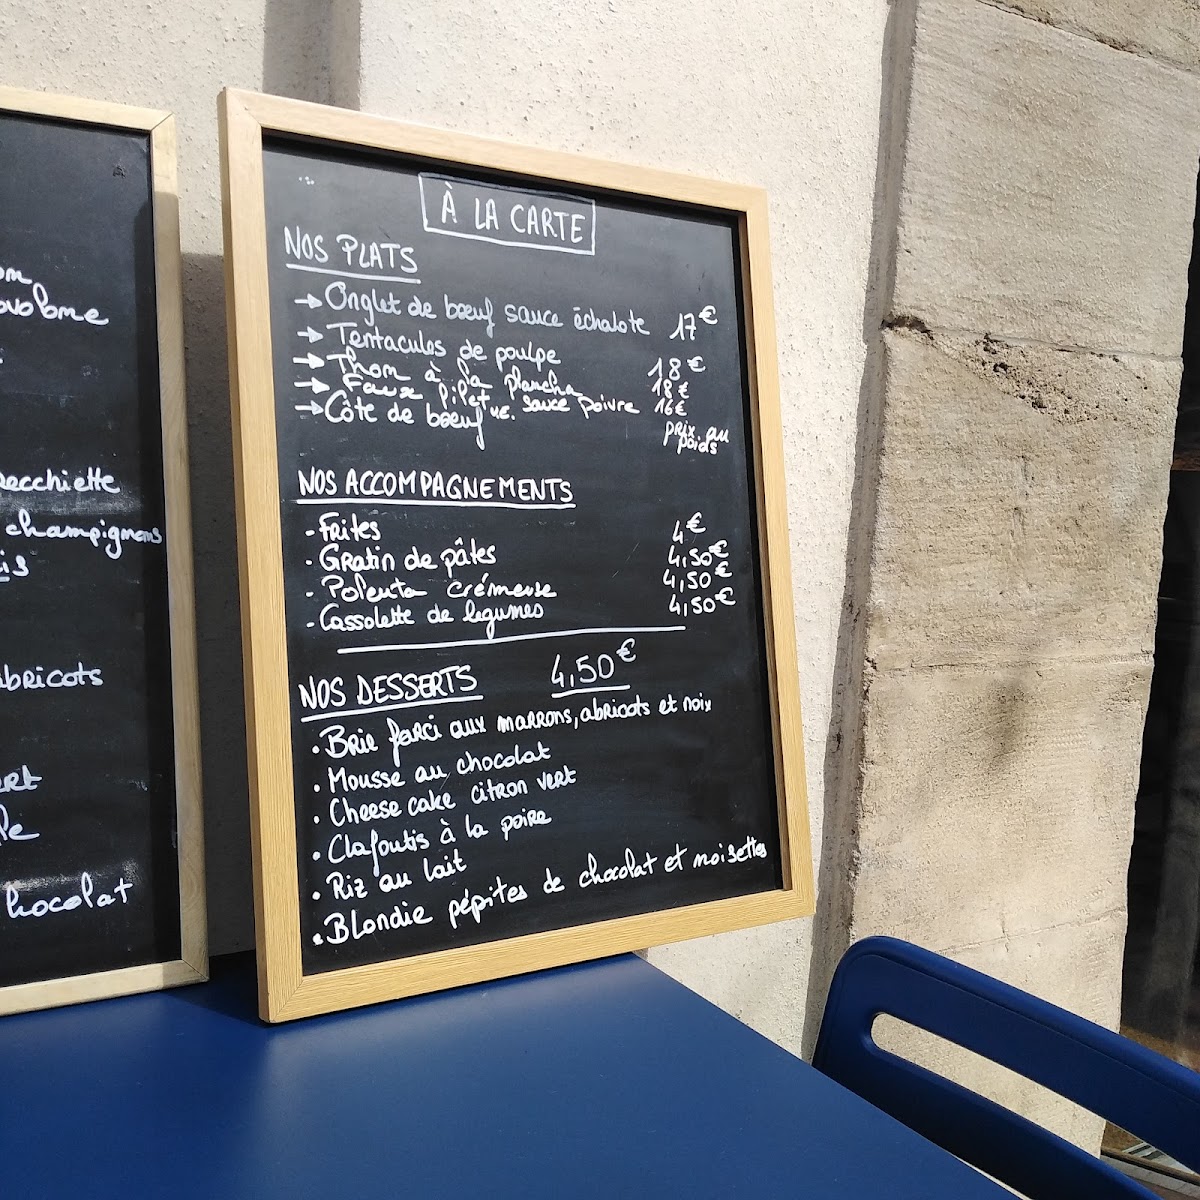 ovolone
recchiette
champignons
is
abricots
ert
hocolat
À LA CARTE
NOS PLATS
→ Onglet de bœuf sauce échalote 17€
→ Tentacules de poulpe 18€
→ Thon à la plancha 18€
→ Faux filet sauce poivre 16€
→ Côte de bœuf prix au
poids
NOS ACCOMPAGNEMENTS
- Frites 4€
- Gratin de pâtes 4,50€
- Polenta crémeuse 4,50€
- Cassolette de legumes 4,50€
NOS DESSERTS 4,50€
• Brie farci aux marrons, abricots et noix
• Mousse au chocolat
• Cheese cake citron vert
• Clafoutis à la poire
• Riz au lait
• Blondie pépites de chocolat et noisettes